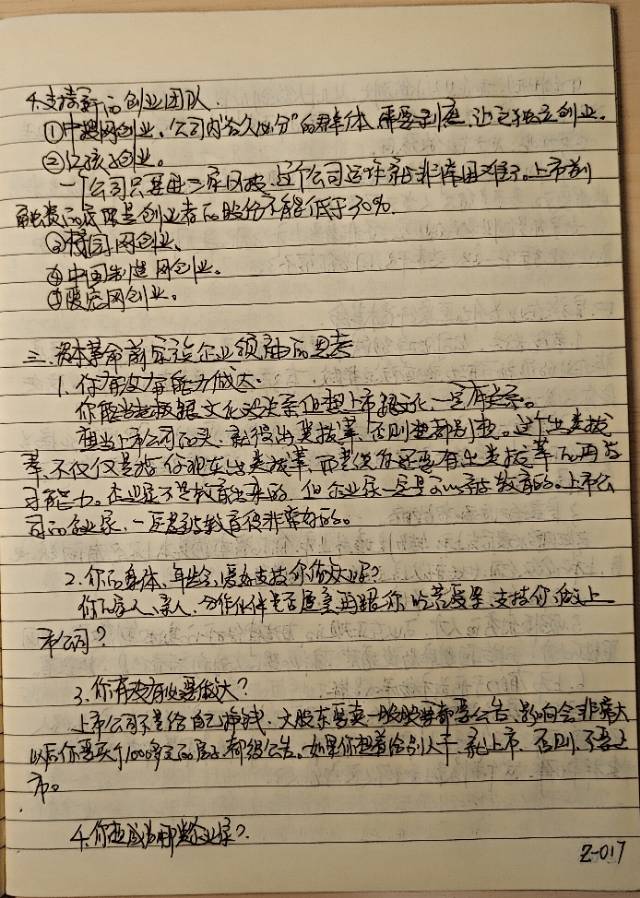 4.支持新的创业团队.
①中搜网创业。公司内"合久必分"的群体需要剥离,让它独立创业。
②红孩子创业。
一个公司只要进三家风投,这个公司运作就非常困难了。上市前
融资的底限是创业者的股份不能低于30%.
③搏网创业、
④中国制造网创业。
⑤暖岛网创业。
三、资本革命前实施企业领袖的思考
1.你有没有能力做大.
你能当老板跟文化没关系但想上市跟文化一定有关系。
想当上市公司的头,就得出类拔萃,否则想都别想。这个出类拔
萃,不仅仅是指你现在出类拔萃,而是说你还要有出类拔萃的再学
习能力。企业家不是教育出来的,但企业家一定是可以被教育的。上市公
司的企业家,一定都被教育得非常好的。
2.你的身体、年龄、爱好支持你做大吗?
你的家人、亲人、合作伙伴是否愿意再跟你吃苦受累,支持你做上
市公司?
3.你有没有必要做大?
上市公司不是给自己挣钱.大股东要卖一股股票都要公告,影响会非常大
以后你要买个1000多万的房子,都得公告。如果你想着给别人干,就上市,否则,不要上
市。
4.你想成为哪类企业家?.
Z-017